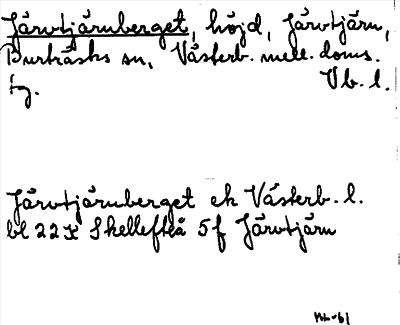 Järvtjärnberget, höjd, Järvtjärn,
Burträsks sn, Västerb. mell. doms.
tg. Vb. l.
Järvtjärnberget ek Västerb. l.
bl 22 K Skellefteå 5f Järvtjärn